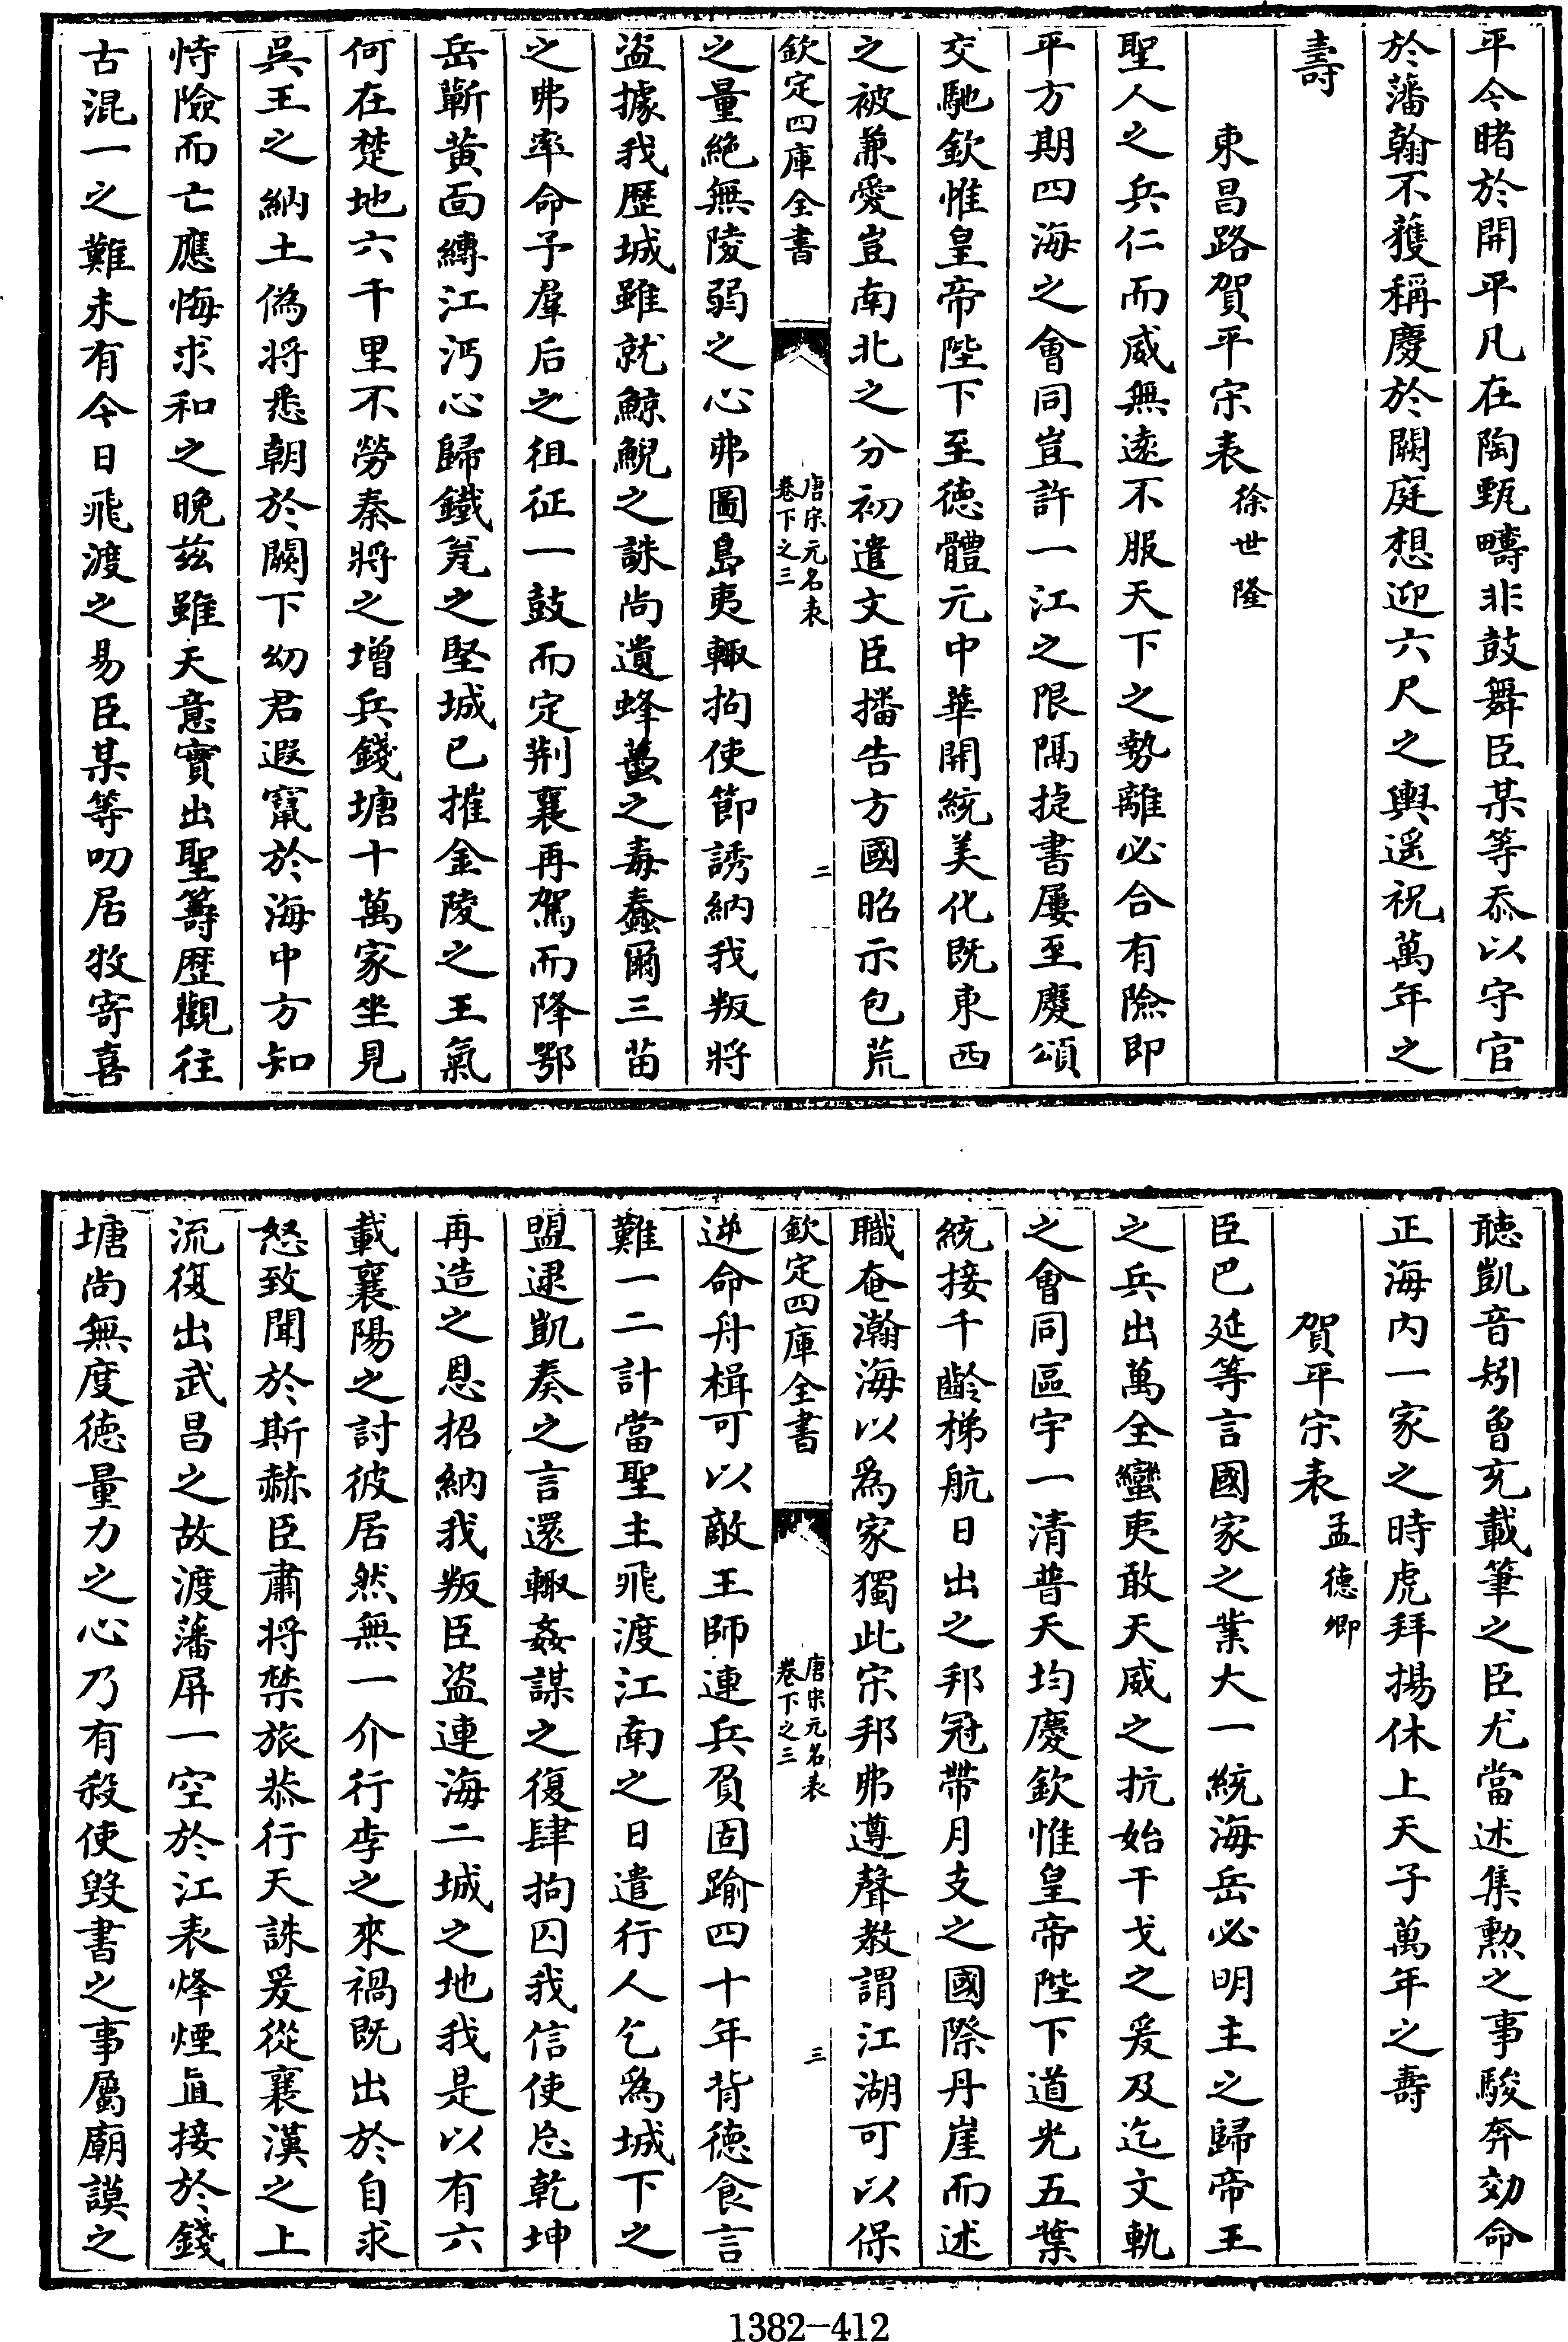 平今睹於開平凡在陶甄疇非鼓舞臣某等忝以守官
於藩翰不獲稱慶於闕庭想迎六尺之輿遥祝萬年之
壽
東昌路賀平宋表徐世隆
聖人之兵仁而威無逺不服天下之勢離必合有險即
平方期四海之會同豈許一江之限隔捷書屢至慶頌
交馳欽惟皇帝陛下至德體元中華開統美化既東西
之被兼愛豈南北之分初遣文臣播告方國昭示包荒
欽定四庫全書
唐宋元名表
卷下之三
二
之量絶無陵弱之心弗圖島夷輙拘使節誘納我叛將
盜據我歴城雖就鯨鯢之誅尚遺蜂蠆之毒蠢爾三苗
之弗率命予羣后之徂征一鼓而定荆襄再駕而降鄂
岳蘄黄面縳江沔心歸鐵瓮之堅城已摧金陵之王氣
何在楚地六千里不勞秦將之增兵錢塘十萬家坐見
吳王之納土僞將悉朝於闕下幼君遐竄於海中方知
恃險而亡應悔求和之晚兹雖天意實出聖籌歴觀往
古混一之難未有今日飛渡之易臣某等叨居牧寄喜
聽凱音矧魯兖載筆之臣尤當述集勲之事駿奔効命
正海内一家之時虎拜揚休上天子萬年之壽
賀平宋表孟德卿
臣巴延等言國家之業大一統海岳必明主之歸帝王
之兵出萬全蠻夷敢天威之抗始干戈之爰及迄文軌
之會同區宇一清普天均慶欽惟皇帝陛下道光五葉
統接千齡梯航日出之邦冠帶月支之國際丹崖而述
職奄瀚海以為家獨此宋邦弗遵聲教謂江湖可以保
欽定四庫全書
唐宋元名表
卷下之三
三
逆命舟楫可以敵王師連兵負固踰四十年背德食言
難一二計當聖主飛渡江南之日遣行人乞為城下之
盟逮凱奏之言還輙姦謀之復肆拘囚我信使忘乾坤
再造之恩招納我叛臣盜連海二城之地我是以有六
載襄陽之討彼居然無一介行李之來禍既出於自求
怒致聞於斯赫臣肅將禁旅恭行天誅爰從襄漢之上
流復出武昌之故渡藩屏一空於江表烽煙直接於錢
塘尚無度德量力之心乃有殺使毀書之事屬廟謨之
1382-412